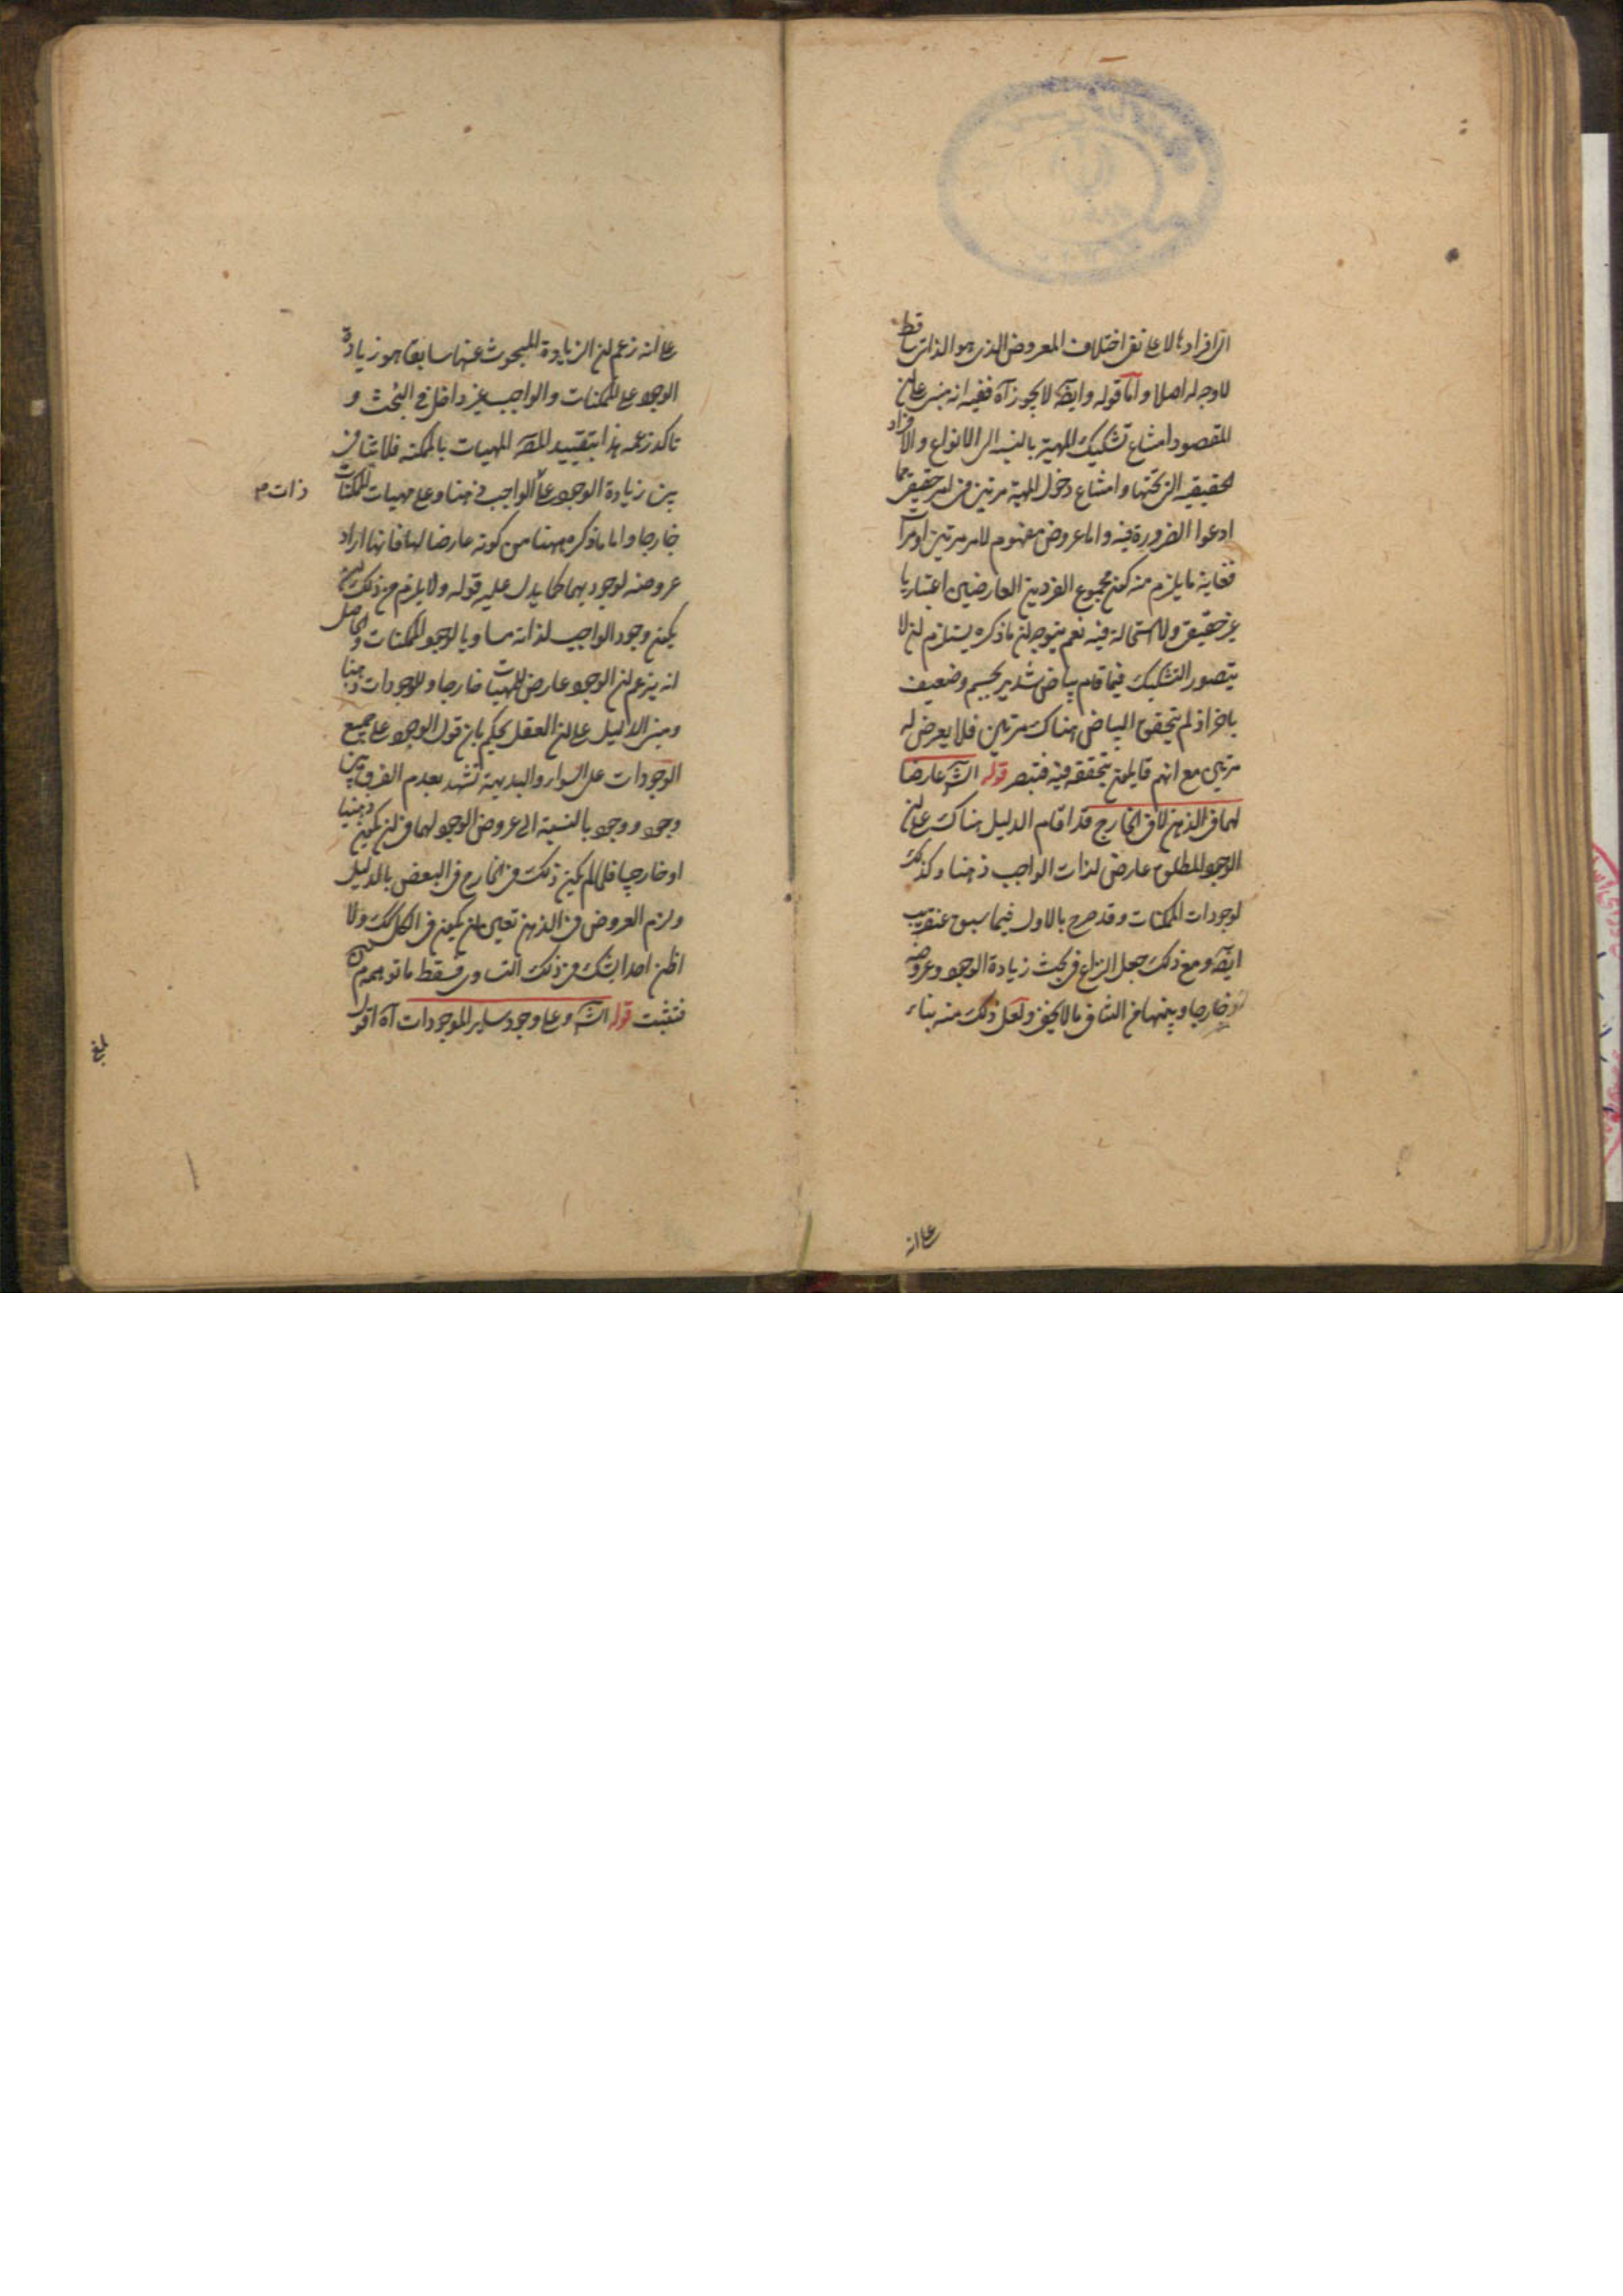 الى افرادها لا على نفى اختلاف المعروض الذى هو الذات ساقط
لا وجه له اصلا واما قوله وايضا لا يجوز آه ففيه انه مبنى على ان
المقصود امتناع تشكيك المهية بالنسبة الى الانواع والافراد
الحقيقية التى تحتها وامتناع دخول المهية مرتين فى امر حقيقى مما
ادعوا الضرورة فيه واما عروض مفهوم لامر مرتين او مرآ
فغاية ما يلزم منه كون مجموع الفردين العارضين اعتباريا
غير حقيقى ولا استحالة فيه نعم يتوجه ان ما ذكره يستلزم ان لا
يتصور التشكيك فيما قام بياض شديد بجسم وضعيف
باخر اذ لم يتحقق البياض هناك مرتين فلا يعرض له
مرتين مع انهم قايلون بتحققه فيه فتبصر قوله الش عارضا
لهما فى الذهن لا فى الخارج قد اقام الدليل هناك على ان
الوجود المطلق عارض لذات الواجب ذهنا وكذلك
لوجودات الممكنات وقد صرح بالاول فيما سبق عنقريب
ايضا ومع ذلك جعل النزاع فى بحث زيادة الوجود وعروضه
خارجا وبينهما من التنافى ما لا يخفى ولعل ذلك منه بناء
على انه
على انه زعم ان الزيادة المبحوث عنها سابقا هو زيادة
الوجود على الممكنات والواجب غير داخل فى البحث و
تاكد زعمه هذا بتقييد المص المهيات بالممكنة فلا تنافى
بين زيادة الوجود على الواجب ذهنا وعلى مهيات الممكنات
ذات م
خارجا واما ما ذكره ههنا من كونه عارضا لهما فانما اراد
عروضه لوجوديهما كما يدل عليه قوله ولا يلزم من ذلك ان
يكون وجود الواجب لذاته مساويا لوجود الممكنات والحاصل
انه يزعم ان الوجود عارض للمهيات خارجا وللوجودات ذهنا
ومبنى الدليل على ان العقل يحكم بان قول الوجود على جميع
الوجودات على السواء والبديهة تشهد بعدم الفرق بين
وجود ووجود بالنسبة الى عروض الوجود لهما فى ان يكون ذهنيا
او خارجيا فلما لم يكن ذلك فى الخارج فى البعض بالدليل
ولزم العروض فى الذهن تعين بان يكون فى الكل كك ولا
اظن احدا يشك فى ذلك التساوى فسقط ما توهم
فتثبت قوله الش وعلى وجود ساير الموجودات آه اقول
بلغ